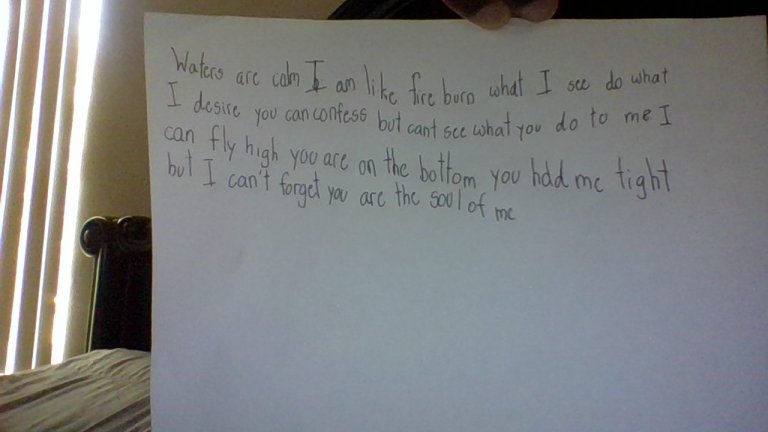 Waters are calm I am like fire burn what I see do what
I desire you can confess but cant see what you do to me I
can fly high you are on the bottom you hold me tight
but I can't forget you are the soul of me